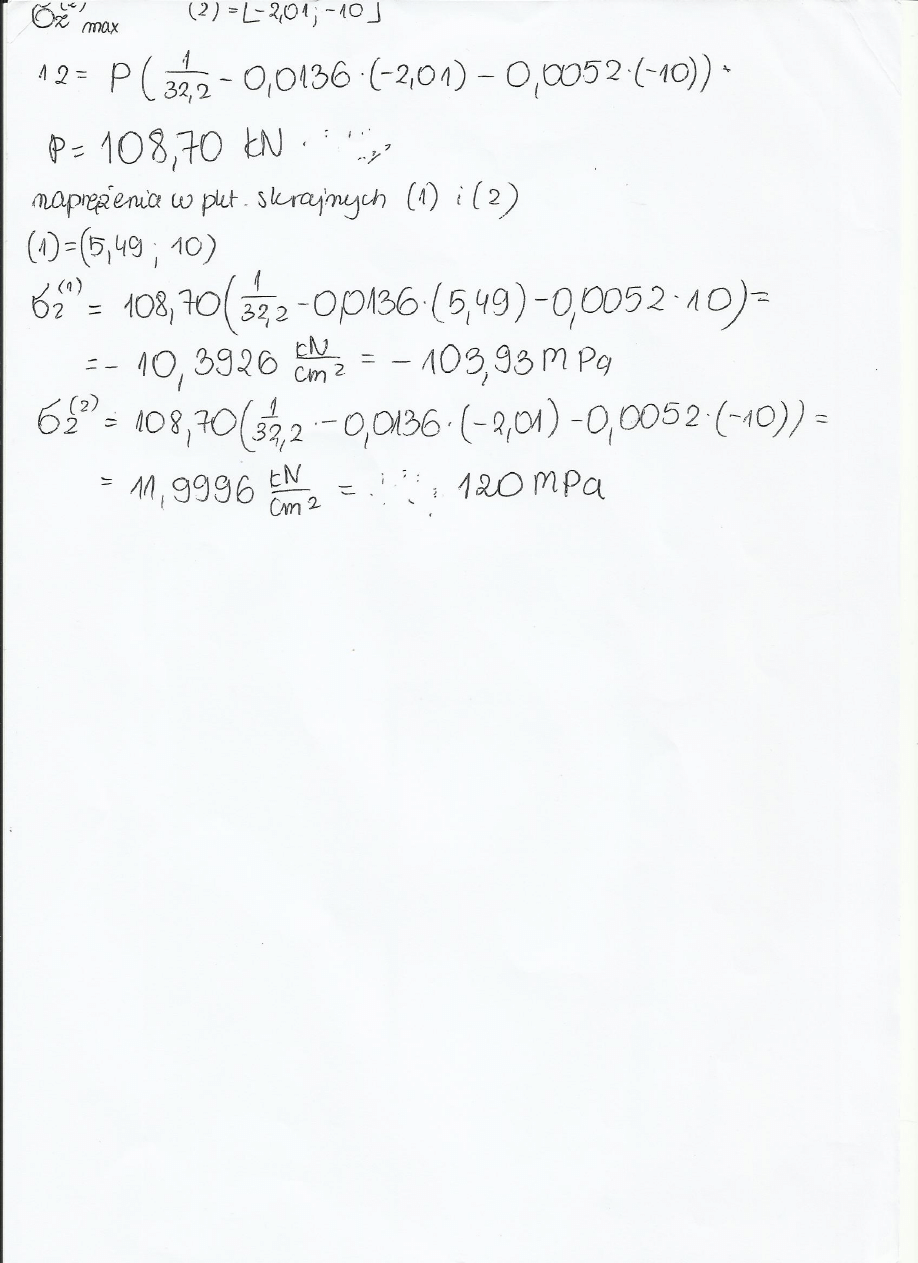 σz max (2) = [-2,01 ; -10]
12 = P(1/32,2 - 0,0136·(-2,01) - 0,0052·(-10))
P = 108,70 kN
naprężenia w pkt. skrajnych (1) i (2)
(1)=(5,49 ; 10)
σz(1) = 108,70(1/32,2 - 0,0136·(5,49) - 0,0052·10) =
= - 10,3926 kN/cm² = - 103,93 MPa
σz(2) = 108,70(1/32,2 - 0,0136·(-2,01) - 0,0052·(-10)) =
= 11,9996 kN/cm² = 120 MPa